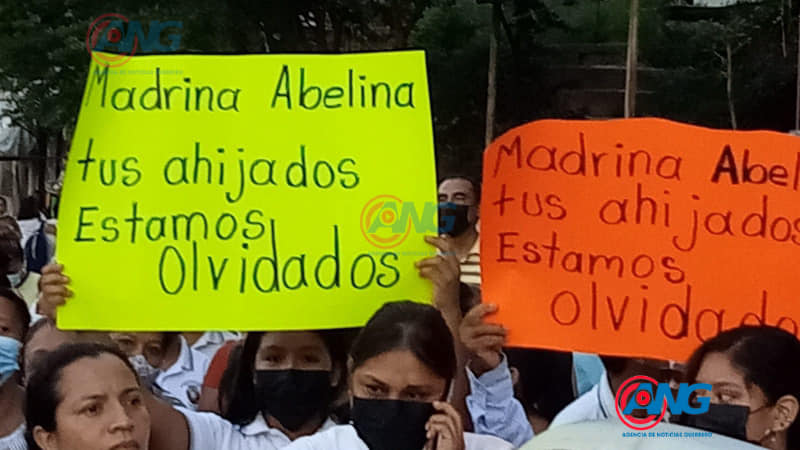 Madrina Abelina
tus ahijados
Estamos
Olvidados
Madrina Abel
tus ahijados
Estamos
olvidado
ANG
ANG
ANG
AGENCIA DE NOTICIAS GUERRERO